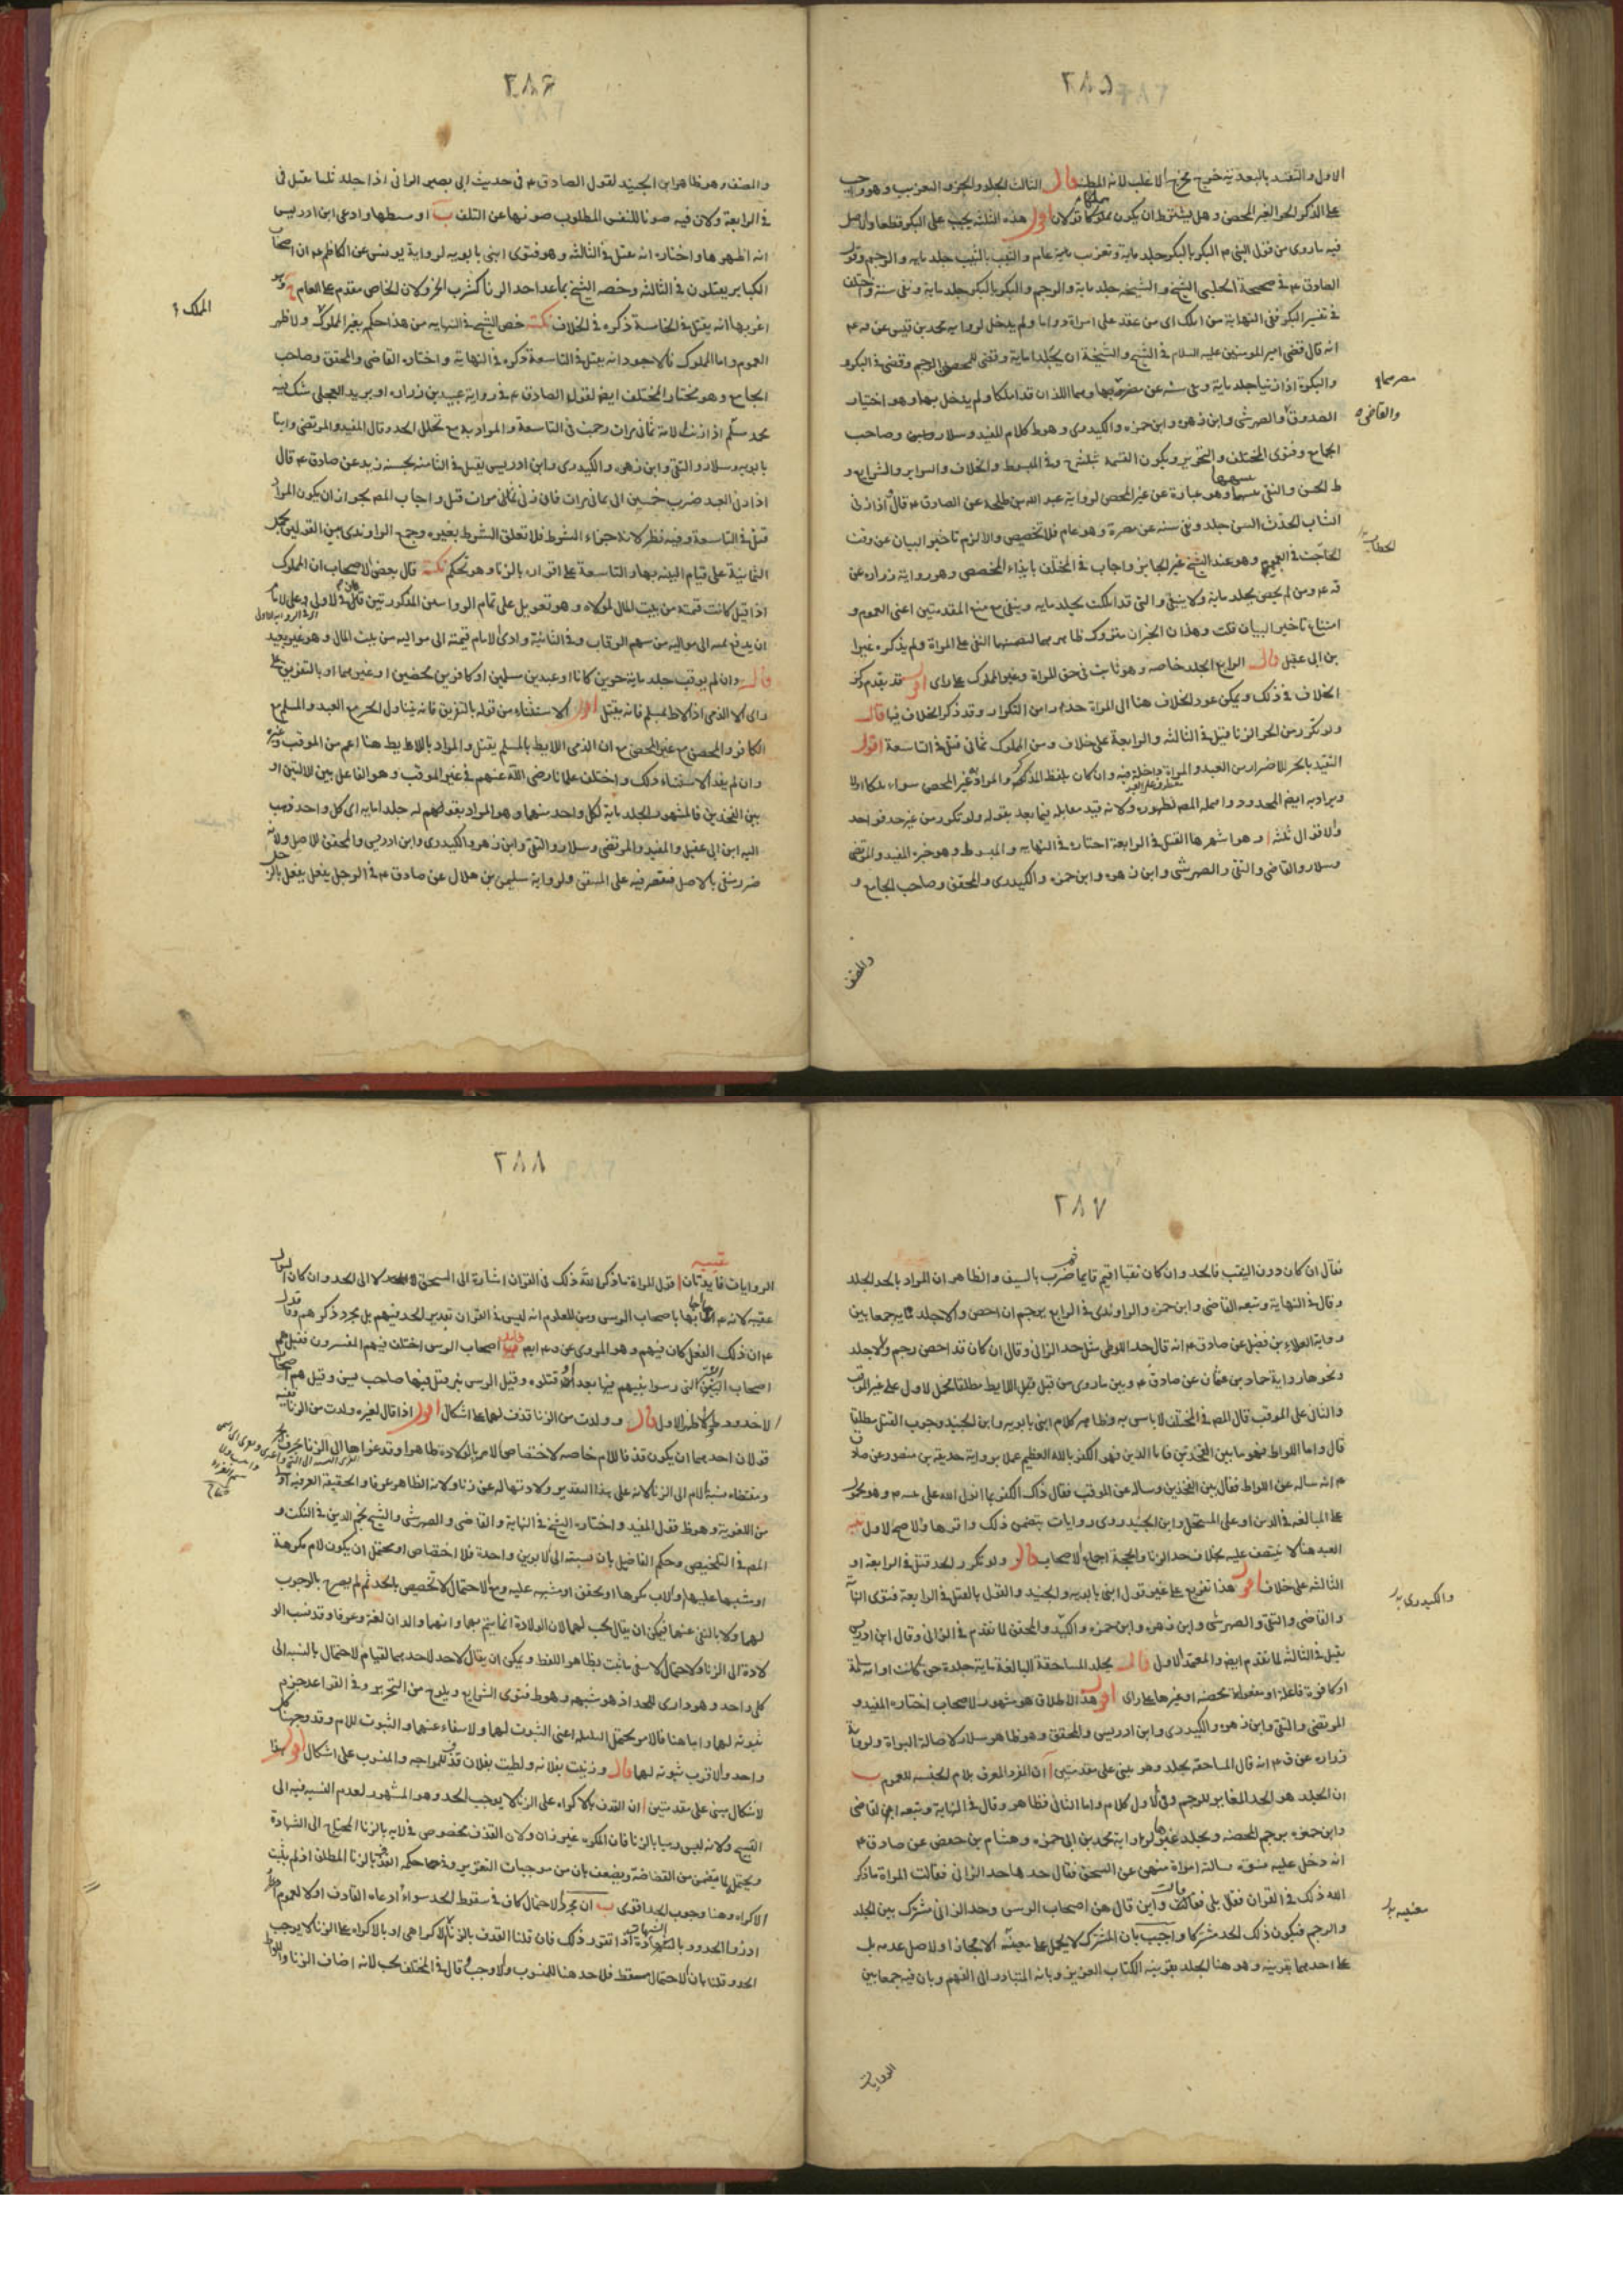 ٢٨٥
الاول والتقييد بالبعدية خرج مخرج الاغلب لانه المظنة قال الثالث الجلد والجز والتغريب وهو واجب
على الذكر الحر الغير المحصن وهل يشترط ان يكون مملكا قولان اقول هذه الثلثة يجب على البكر قطعا والاصل
فيه ماروى من قول النبي ص البكر بالبكر جلد ماية وتغريب عام والثيب بالثيب جلد مايه والرجم وقول
الصادق ع في صحيحة الحلبي الشيخ والشيخة جلد ماية والرجم والبكر بالبكر جلد ماية ونفى سنة واختلف
في تفسير البكر ففى النهاية من املك اى من عقد على امراة دواما ولم يدخل لرواية محمد بن قيس عن قر ع
انه قال قضى امير المومنين عليه السلام في الشيخ والشيخة ان يجلدا ماية وقضى للمحصن الرجم وقضى في البكر و
والبكرة اذا زنيا جلد ماية ونفى سنة عن مصرهما وهما اللذان قد املكا ولم يدخل بها وهو اختيار
الصدوق والصهرشتى وابن زهره وابن حمزه والكيدرى وهو ظ كلام المفيد وسلار وصاحب
الجامع وفتوى المختلف والتحرير ويكون القسمة ثلثة وفى المبسوط والخلاف والسراير والشرايع و
ظ الحسن والنقى وهو عبارة عن غير المحصن لرواية عبد الله بن طلحة عن الصادق ع قال اذا زنى
الشاب الحدث السن جلد ونفى سنة عن مصره وهو عام فلا تخصيص والا لزم تاخير البيان عن وقت
الحاجة وهو عند الشيخ غير الجايز واجاب في المختلف بابداء المخصص وهو رواية زراره عن
قر ع ومن لم يحصن يجلد ماية ولا ينفى والتى قد املكت تجلد مايه وينفى مع منع المقدمتين اعنى العموم و
امتناع تاخير البيان قلت وهذان الخبران متروك ظاهرهما لتضمنها النفى على المراة ولم يذكره غير ا
بن ابى عقيل قال الرابع الجلد خاصه وهو ثابت في حق المراة وغير المملوك على راى اقول قد تقدم ذكر
الخلاف في ذلك ويمكن عود الخلاف هنا الى المراة حذرا من التكرار وقد ذكر الخلاف فيها قال
ولو تكرر من الحر الزنا قتل في الثالثه والرابعة على خلاف ومن المملوك ثمانى قتل في التاسعة اقول
التقييد بالحر للاضرار من العبد والمراة داخلة فيه وان كان بلفظ المذكر والمراد غير المحصن سواء ملكا اولا
ويراد به ايضا المحدود واهمله المص لظهوره ولانه قيد مقابله فيما بعد بقوله ولو تكرر من غير حد فواحد
والاقوال ثلثة ا وهو اشهرها القتل في الرابعة اختاره في النهايه والمبسوط وهو خيره المفيد والمرتضى
وسلار والقاضى والتقى والصهرشتى وابن زهره وابن حمزه والكيدرى والمحقق وصاحب الجامع و
والقاضى
والمصنف
٢٨٦
والمصنف وهو ظاهر ابن الجنيد لقول الصادق ع في حديث ابى بصير الزانى اذا جلد ثلثا يقتل فى
في الرابعة ولان فيه صونا للنفس المطلوب صونها عن التلف ب اوسطها وادعى ابن ادريس
انه اظهرها واختاره انه يقتل في الثالثه وهو فتوى ابنى بابويه لرواية يونس عن الكاظم ع ان اصحاب
الكباير يقتلون في الثالثه وخصه الشيخ بما عدا حد الزنا كشرب الخمر ولان الخاص مقدم على العام ج وهو
اغربها انه يقتل في الخامسة ذكره في الخلاف نكتة خص الشيخ في النهايه من هذا حكم بغير المملوك ولا ظهر
العموم واما المملوك فالاجود انه يقتل في التاسعة ذكره في النهاية واختاره القاضى والمحقق وصاحب
الجامع وهو مختار المختلف ايضا لقول الصادق ع في رواية عبيد بن زراره او بريد العجلى شك فيه
محمد بن سلم اذا زنت الامة ثمانى مرات رجمت في التاسعة والمراد به مع تخلل الحد وقال المفيد والمرتضى وابنا
بابويه وسلار والتقى وابن زهره والكيدرى وابن ادريس يقتل في الثامنه لحسنه زيد عن صادق ع قال
اذا زنى العبد ضرب خمسين الى ثمانى مرات فان زنى ثمانى مرات قتل واجاب المص بجواز ان يكون المراد
قتل في التاسعة وفيه نظر لانه جزاء الشرط فلا تعلق الشرط بغيره وجمع الراوندى بين القولين بحمل
الثمانية على قيام البينه بها والتاسعة على اقراره بالزنا وهو تحكم نكتة قال بعض الاصحاب ان المملوك
اذا قتل كانت قيمته من بيت المال لمولاه وهو تعويل على تمام الروايتين المذكورتين قال في الاولى وعلى الامام
ان يدفع ثمنه الى مواليه من سهم الرقاب وفى الثانية وادى الامام قيمته الى مواليه من بيت المال وهو غير بعيد
قال وان لم يوقب جلد ماية حرين كانا او عبدين مسلمين او كافرين محصنين او غيرهما او بالتفريق على
راى الا الذمى اذا لاط بمسلم فانه يقتل اقول الاستثناء من قوله بالتفريق فانه يتناول الحر مع العبد والمسلم مع
الكافر والمحصن مع غير المحصن مع ان الذمى اللايط بالمسلم يقتل والمراد باللاط يط هنا اعم من الموقب وغيره
وان لم يفد الاستثناء ذلك واختلف علمائنا رضى الله عنهم في غير الموقب وهو الفاعل بين الاليتين او
بين الفخذين فالمشهور الجلد ماية لكل واحد منهما وهو المراد بقولهم له جلدا مايه اى كل واحد ذهب
اليه ابن ابى عقيل والمفيد والمرتضى وسلار والتقى وابن زهره والكيدرى وابن ادريس والمحقق للاصل ولانه
ضرر ينفى بالاصل فيقتصر فيه على المتيقن ولرواية سليمن بن هلال عن صادق ع في الرجل يفعل بالرجل
المملك
٢٨٧
فقال ان كان دون الثقب فالحد وان كان ثقبا اقيم قايما ثم ضرب بالسيف والظاهر ان المراد بالحد الجلد
وقال في النهاية وتبعه القاضى وابن حمزه والراوندى في الرابع يرجم ان احصن والا جلد مايه جمعا بين
رواية العلاء بن فضيل عن صادق ع انه قال حد اللوطى مثل حد الزانى وقال ان كان قد احصن رجم والا جلد
ونحوها رواية حماد بن عثمان عن صادق ع وبين ماروى من قتل اللايط مطلقا بحمل الاول على غير الموقب
والثانى على الموقب قال المص في المختلف لاباس به وظاهر كلام ابنى بابويه وابن الجنيد وجوب القتل مطلقا
قال واما اللواط فهو مابين الفخذين فاما الدبر فهو الكفر بالله العظيم عملا برواية حذيفة بن منصور عن صادق
ع انه ساله عن اللواط فقال بين الفخذين وساله عن الموقب فقال ذلك الكفر بما انزل الله على نبيه ص وهو محمول
على المبالغه في الذنب او على المستحل وابن الجنيد روى روايات يتضمن ذلك واثرها والاصح الاول تنبيه
العبد هنا لا يتنصف عليه بخلاف حد الزنا والحجة اجماع الاصحاب قال ولو تكرر الحد قتل في الرابعة او
الثالثه على خلاف اقول هذا تفريع على غير قول ابنى بابويه والجنيد والقول بالقتل في الرابعة فتوى الثلثة
والقاضى والتقى والصهرشتى وابن زهره وابن حمزه والكيدرى والمحقق لما تقدم في الزانى وقال ابن ادريس
يقتل في الثالثه لما تقدم ايضا والمعتمد الاول قال يجلد المساحقة البالغة ماية جلدة حرة كانت او امة مسلمة
او كافرة فاعلة او مفعولة محصنة او غيرها على راى اقول هذا الاطلاق هو مشهور الاصحاب اختاره المفيد و
المرتضى والتقى وابن زهره والكيدرى وابن ادريس والمحقق وهو ظاهر سلار لاصالة البراة ولرواية
زراره عن قر ع انه قال المساحقة تجلد وهو مبنى على مقدمتين ا ان المفرد المعرف بلام الجنسيه للعموم ب
ان الجلد هو الحد المغاير للرجم وفى الاول كلام واما الثانى فظاهر وقال في النهاية وتبعه ابن القاضى
وابن حمزه يرجم المحصنه ويجلد غيرها لرواية محمد بن ابى حمزه وهشام بن حفص عن صادق ع
انه دخل عليه نسوة سالته امراة منهن عن السحق فقال حدها حد الزانى فقالت المراة ماذكر
الله ذلك في القران فقال بلى فقالت واين قال هن اصحاب الرس وحد الزانى مشترك بين الجلد
والرجم فيكون ذلك الحد مشتركا واجيب بان المشترك لا يحمل على معينه الا مجازا والاصل عدمه بل
على احدهما بقرينه وهو هنا الجلد بقرينه الكتاب العزيز وبانه المتبادر الى الفهم وبان فيه جمعا بين
والكيدرى
الروايات
٢٨٨
الروايات فايدتان ا قول المراة ماذكر الله ذلك في القران اشارة الى السحق لا الى الحد وان كان السوال
عقيبه لانه ع اجابها باصحاب الرس ومن المعلوم انه ليس في القران تقدير الحد فيهم بل مجرد ذكرهم وقد قال
ع ان ذلك الفعل كان فيهم وهو المروى عن قر ع ايضا ب اصحاب الرس اختلف فيهم المفسرون فقيل هم
اصحاب البئر التى رسوا نبيهم فيها بعد ان قتلوه وقيل الرس بئر قتل فيها صاحب يس وقيل هم اصحاب
الاخدود والاظهر الاول قال وولدت من الزنا قذف لهما على اشكال اقول اذا قال لغيره ولدت من الزنا ففيه
قولان احدهما ان يكون قذفا للام خاصه لاختصاص الامر بالولادة ظاهرا وقد عزاها الى الزنا بحرف الجر
ومقتضاه نسبة الام الى الزنا لانه على هذا التقدير ولادتها له عن زنا ولانه الظاهر عرفا والحقيقة العرفيه اولى
من اللغوية وهو ظ قول المفيد واختاره الشيخ في النهاية والقاضى والصهرشتى والشيخ نجم الدين في النكت و
المص في التلخيص وحكم الفاضل بان نسبته الى الابوين واحدة فلا اختصاص او محتمل ان يكون الام مكرهة
او مشتبها عليها والاب مكرها او يحقق او مشتبه عليه ومع الاحتمال لا تخصيص بالحد ثم لم يصرح بالوجوب
لهما ولا بالنفى عنهما فيمكن ان يقال يجب لهما لان الولادة انما يتم بهما وانهما والدان لغة وعرفا وقد نسب الو
لادة الى الزنا والاحتمال لا ينفى ماثبت بظاهر اللفظ ويمكن ان يقال لاحد لاحدهما لقيام الاحتمال بالنسبه الى
كل واحد وهو دارى للحد اذ هو شبهه وهو ظ فتوى الشرايع ويلوح من التحرير وفى القواعد جزم
ثبوته لهما واما هنا فالامر يحتمل الثلثه اعنى الثبوت لهما والانتفاء عنهما والثبوت للام وقد وجهنا كل
واحد والاقرب ثبوته لهما قال وزنيت بفلانه ولطت بفلان قذف للمواجه والمنسوب على اشكال اقول هذا
الاشكال مبنى على مقدمتين ا ان القذف بالاكراه على الزنا لا يوجب الحد وهو المشهور لعدم النسبه فيه الى
القبيح ولانه ليس زنيا بالزنا فان المكره غير زان ولان القذف مخصوص في الايه بالزنا المحتاج الى الشهادة
ويحتمل لما يتضمن من الغضاضه ويضعف بان من موجبات التعزير وقد مر حكمه القذف بالزنا المطلق اذ لم يثبت
الاكراه وهنا وجوب الحد اقوى ب ان مجرد الاحتمال كاف في سقوط الحد سواء ادعاه القاذف اولا لعموم
ادرؤا الحدود بالشبهات اذا تقرر ذلك فان قلنا القذف بالزنا الاكراهى او بالاكراه على الزنا لا يوجب
الحد وقلنا بان الاحتمال مسقط فلا حد هنا للمنسوب والا وجب قال في المختلف يجب لانه اضاف الزنا واللواط